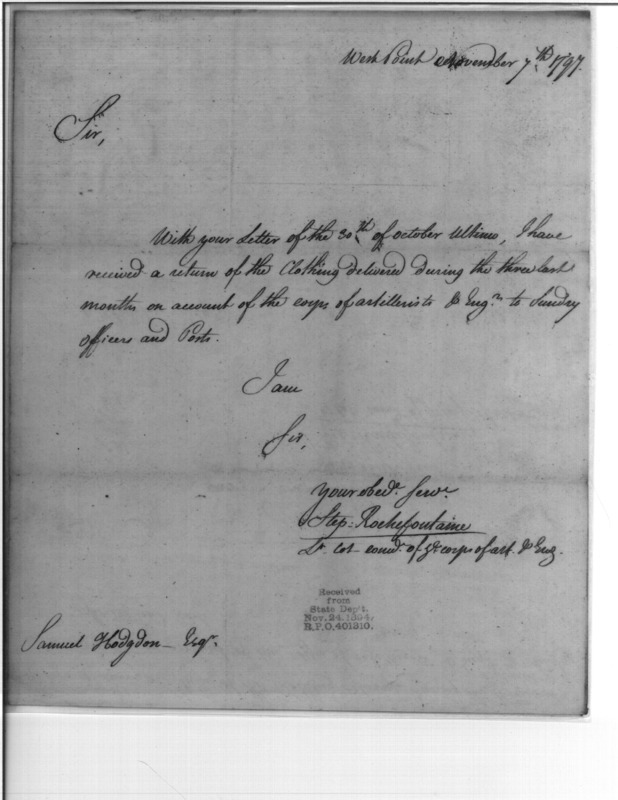 West Point November 7th 1797.
Sir,
With your Letter of the 30th of october Ultimo, I have
received a return of the Clothing delivered during the three last
months on account of the corps of artillerists & Engrs to Sundry
officers and Posts.
I am
Sir,
your obedt Servt
Step. Rochefontaine
Lt Col comdt of corps of art. & Eng.
Received
from
State Dep't.
Nov. 24. 1894,
R.P.O. 401310.
Samuel Hodgdon - Esqr.